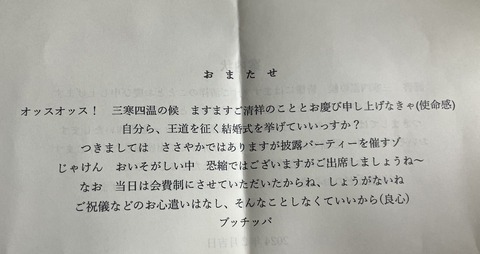 おまたせ
オッスオッス！　三寒四温の候　ますますご清祥のこととお慶び申し上げなきゃ(使命感)
自分ら、王道を征く結婚式を挙げていいっすか？
つきましては　ささやかではありますが披露パーティーを催すゾ
じゃけん　おいそがしい中　恐縮ではございますがご出席しましょうね～
なお　当日は会費制にさせていただいたからね、しょうがないね
ご祝儀などのお心遣いはなし、そんなことしなくていいから(良心)
ブッチッパ